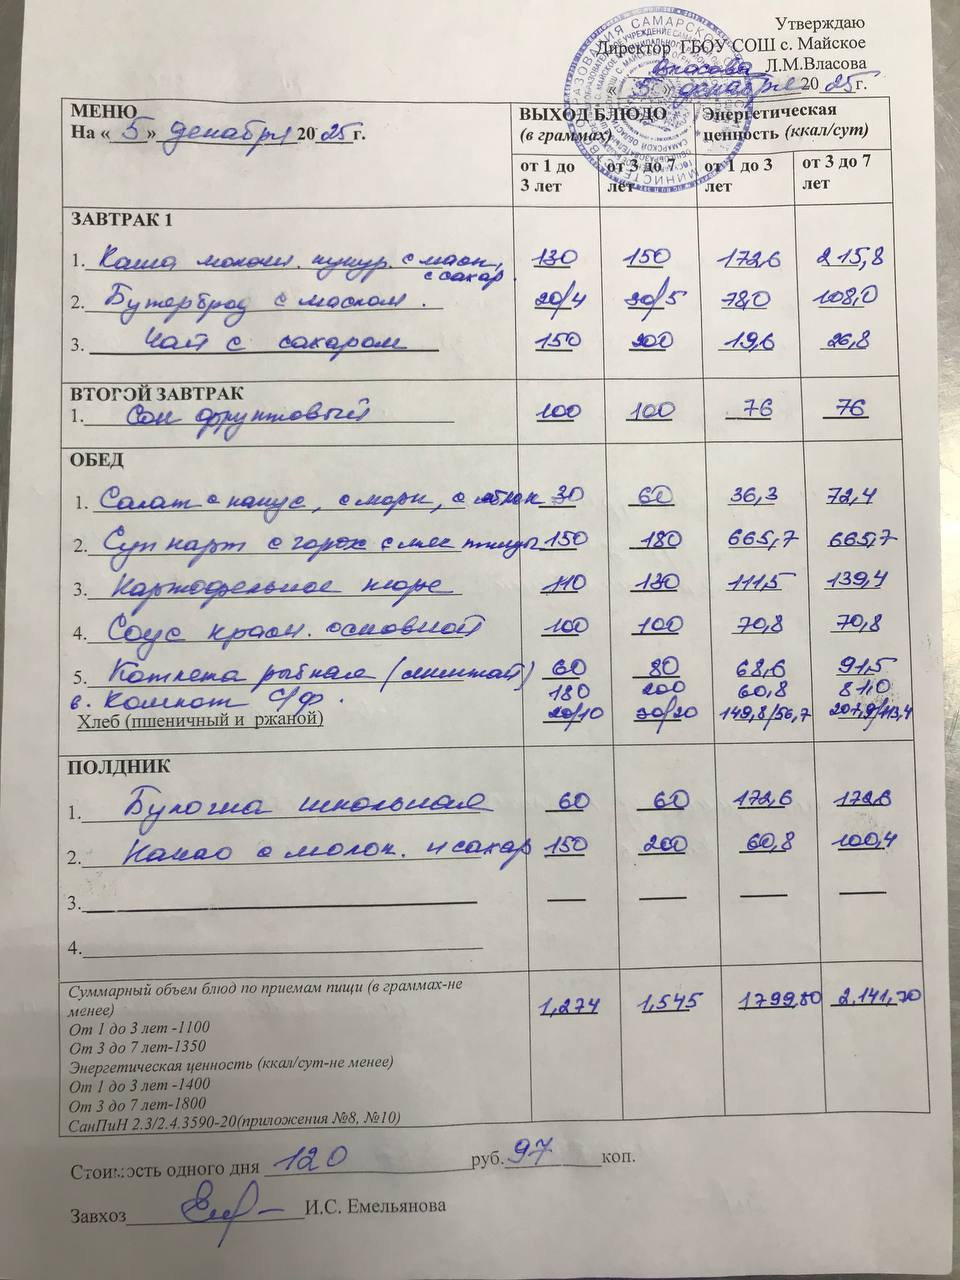 Утверждаю
Директор ГБОУ СОШ с. Майское
Власова Л.М.Власова
«5» декабря 2025г.
МЕНЮ
На «5» декабря 2025г.
ВЫХОД БЛЮДО (в граммах)
Энергетическая ценность (ккал/сут)
от 1 до 3 лет от 3 до 7 лет от 1 до 3 лет от 3 до 7 лет
ЗАВТРАК 1
1. Каша молочн. кукур. с масл, с сахар. 130 150 172,6 215,8
2. Бутерброд с маслом. 20/4 30/5 78,0 108,0
3. Чай с сахаром 150 200 19,6 26,8
ВТОРОЙ ЗАВТРАК
1. Сок фруктовый 100 100 76 76
ОБЕД
1. Салат с капус, с морк, с яблок 30 60 36,3 72,4
2. Суп карт с горох с мяс птицы 150 180 665,7 665,7
3. Картофельное пюре 110 130 111,5 139,4
4. Соус красн. основной 100 100 70,8 70,8
5. Котлета рыбная (минтай) 60 80 68,6 91,5
6. Компот С/Ф. 180 200 60,8 81,0
Хлеб (пшеничный и ржаной) 20/10 30/20 149,8/56,7 207,9/113,4
ПОЛДНИК
1. Булочка школьная 60 60 172,6 172,6
2. Какао с молок. и сахар 150 200 60,8 100,4
3. — — — —
4.
Суммарный объем блюд по приемам пищи (в граммах-не
менее) 1,274 1,545 1799,80 2,141,70
От 1 до 3 лет -1100
От 3 до 7 лет-1350
Энергетическая ценность (ккал/сут-не менее)
От 1 до 3 лет -1400
От 3 до 7 лет-1800
СанПиН 2.3/2.4.3590-20(приложения №8, №10)
Стоимость одного дня 120 руб. 97 коп.
Завхоз И.С. Емельянова